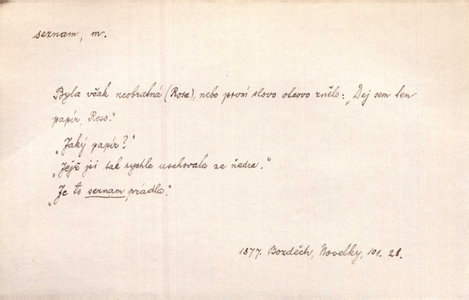 seznam, m.
Byla však neobratná (Rosa), nebo první slovo otcovo znělo: „Dej sem ten
papír, Roso."
„Jaký papír?"
„Jejž jsi tak rychle uschovala za ňadra."
„Je to seznam prádla."
1877. Bozděch, Novelky, 101. 28.